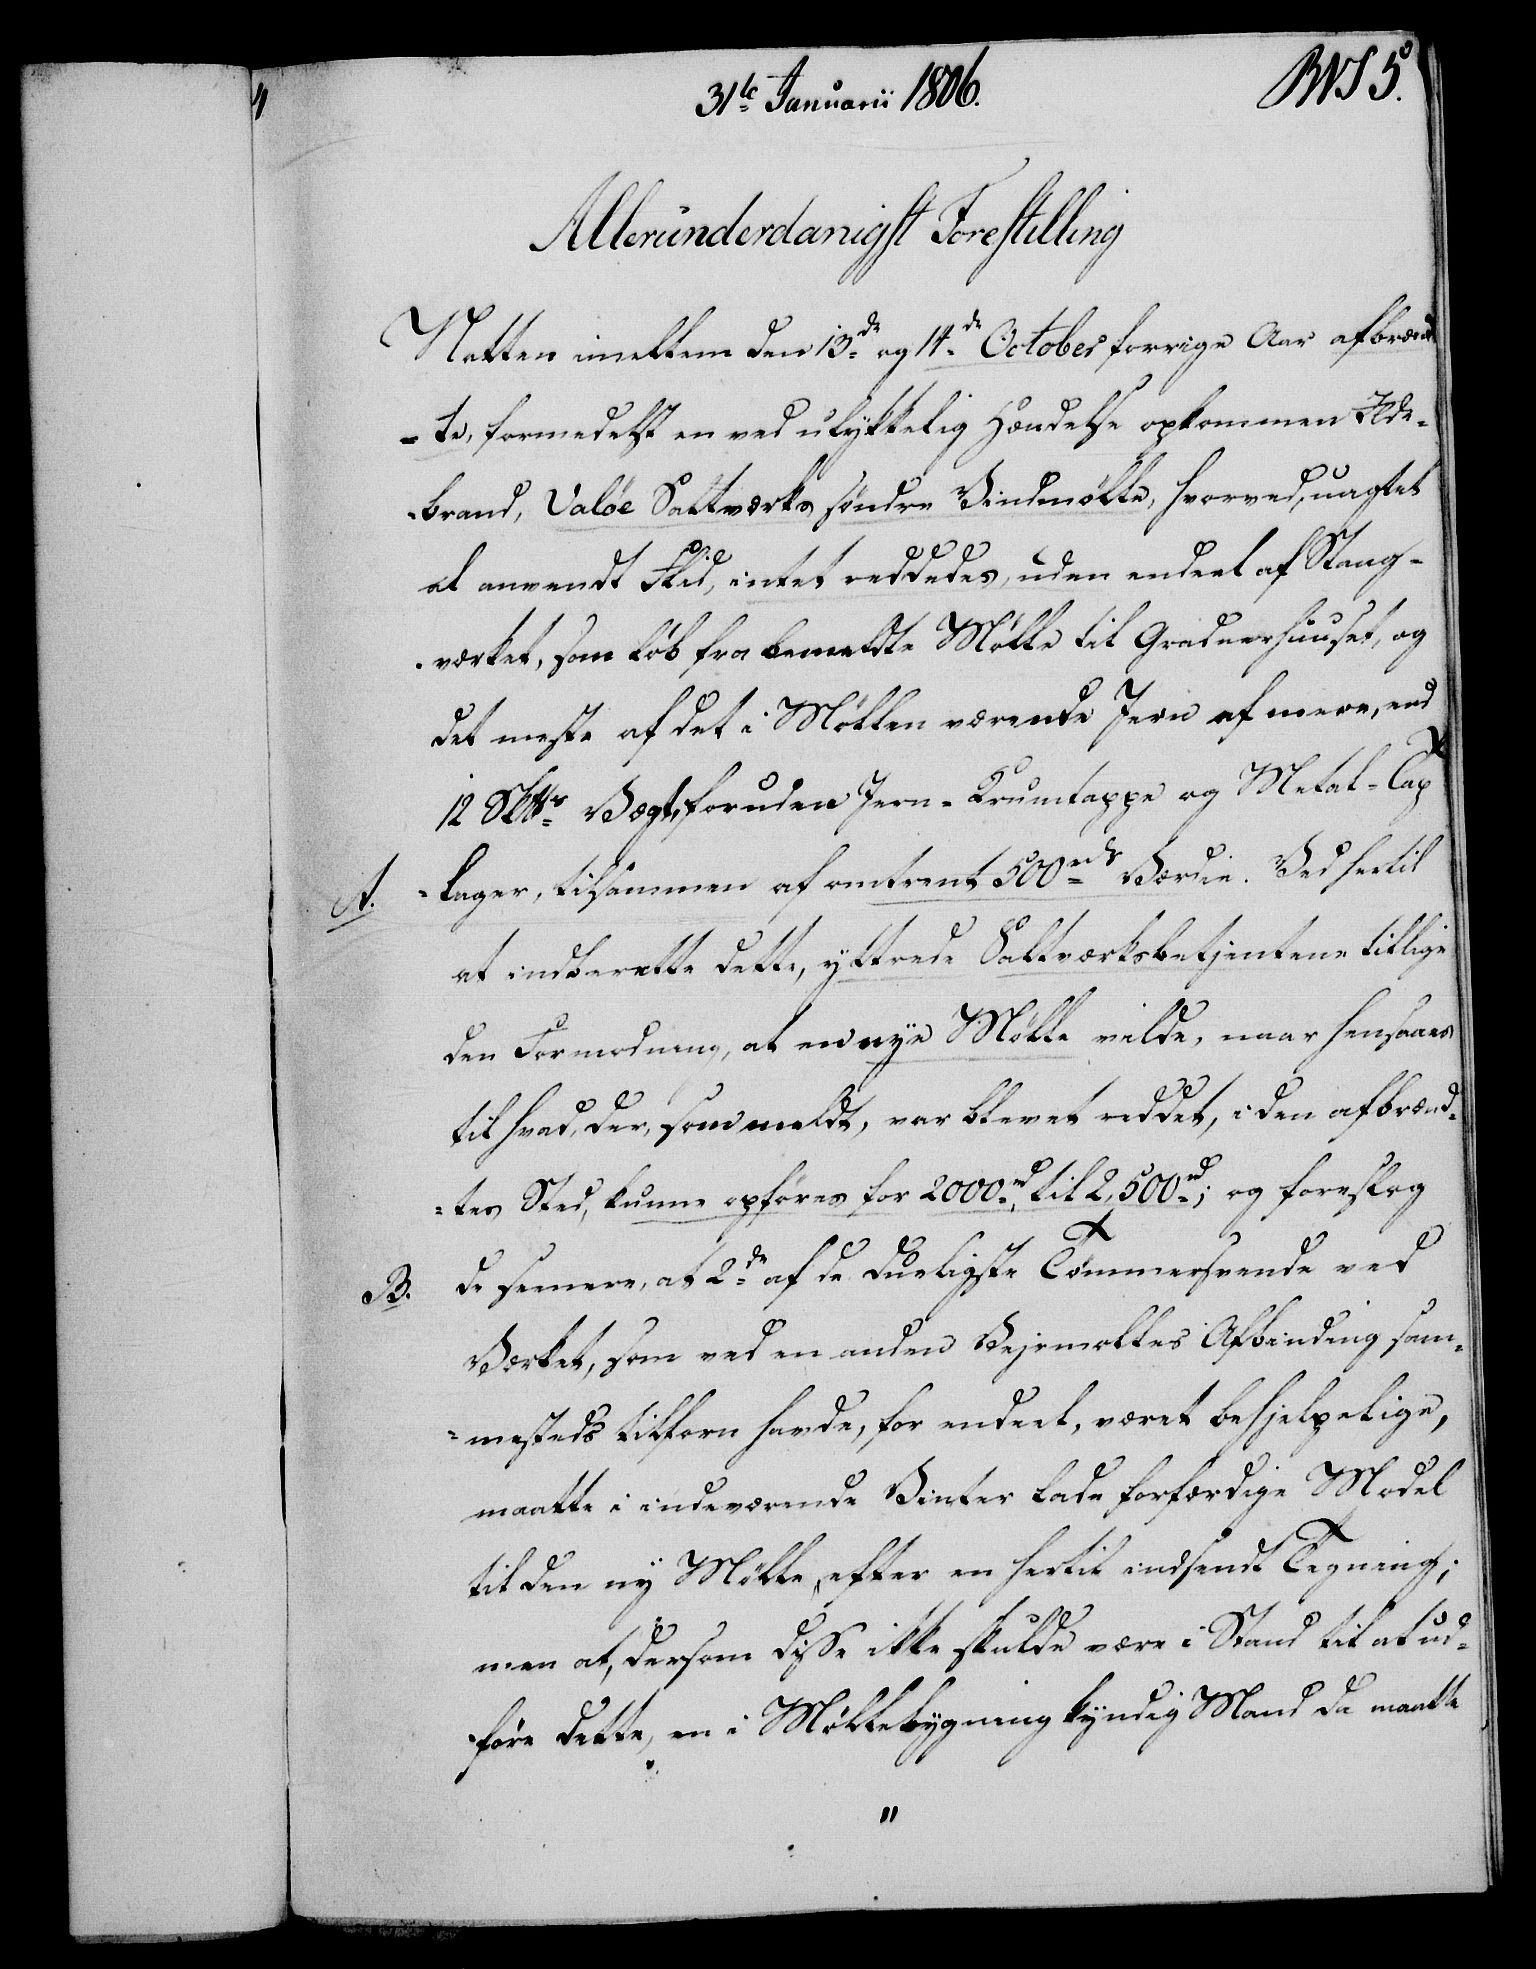 31te Januarii 1806.
Allerunderdanigst Forestilling
Natten imellem den 13de og 14de October forrige Aar afbrænd
-te, formedelst en ved ulykkelig Hændelse opkommen Ilde-
-brand, Valöe Saltværks söndre Vindmölle, hvorved, uagtet
al anvendt Flid, intet reddedes, uden endeel af Stang-
-værket, som löb fra bemeldte Mölle til Graduerhuuset, og
det meste af det i Möllen værende Jern af mere, end
12 Vægt, foruden Jern-Krumtappe og Metal-Tap
A. -lager, tilsammen af omtrent 500rdlr Værdie. Ved hertil
at indberette dette, yttrede Saltværksbetjentene tillige
den Formodning, at en nye Mölle vilde, naar hensaaes
til hvad, der, som meldt, var blevet reddet, i den afbrænd-
-tes Sted, kunne opföres for 2000rd, til 2,500rd; og foreslog
B. de senere, at 2de af de dueligste Tömmersvende ved
Værket, som ved en anden Vejrmölles Afbinding sam-
-mesteds tilforn havde, for endeel, været behjelpelige,
maatte i indeværende Vinter lade forfærdige Model
til den ny Mölle, efter en hertil indsendt Tegning;
men at, dersom disse ikke skulde være i Stand til at ud-
-före dette, en i Möllebygning kyndig Mand da maatte
"